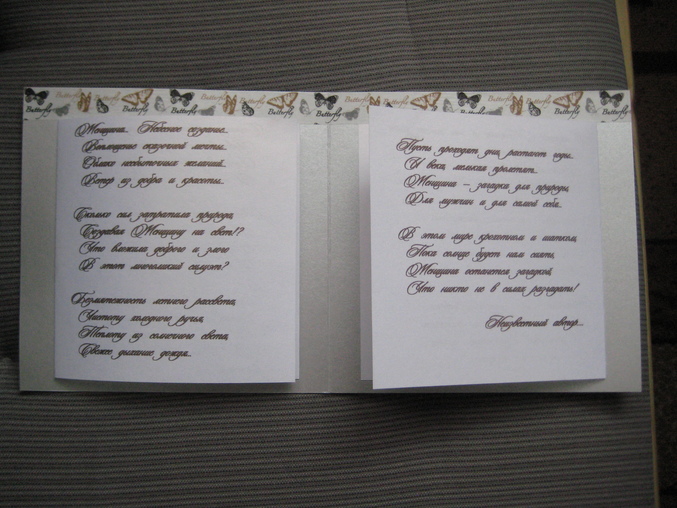 Butterfly Butterfly Butterfly Butterfly Butterfly Butterfly Butterfly Butterfly
Женщина... Небесное создание...
Воплощение сказочной мечты...
Облако несбыточных желаний...
Ветер из добра и красоты...
Сколько сил затратила природа,
Создавая Женщину на свет!?
Что вложила доброго и злого
В этот многоликий силуэт?
Безмятежность летнего рассвета,
Чистоту холодного ручья,
Теплоту из солнечного света,
Свежее дыхание дождя...
Пусть проходят дни, растают годы...
И века, мелькая пролетят...
Женщина – загадка для природы,
Для мужчин и для самой себя...
В этом мире крохотном и шатком,
Пока солнце будет нам сиять,
Женщина останется загадкой,
Что никто не в силах разгадать!
Неизвестный автор...